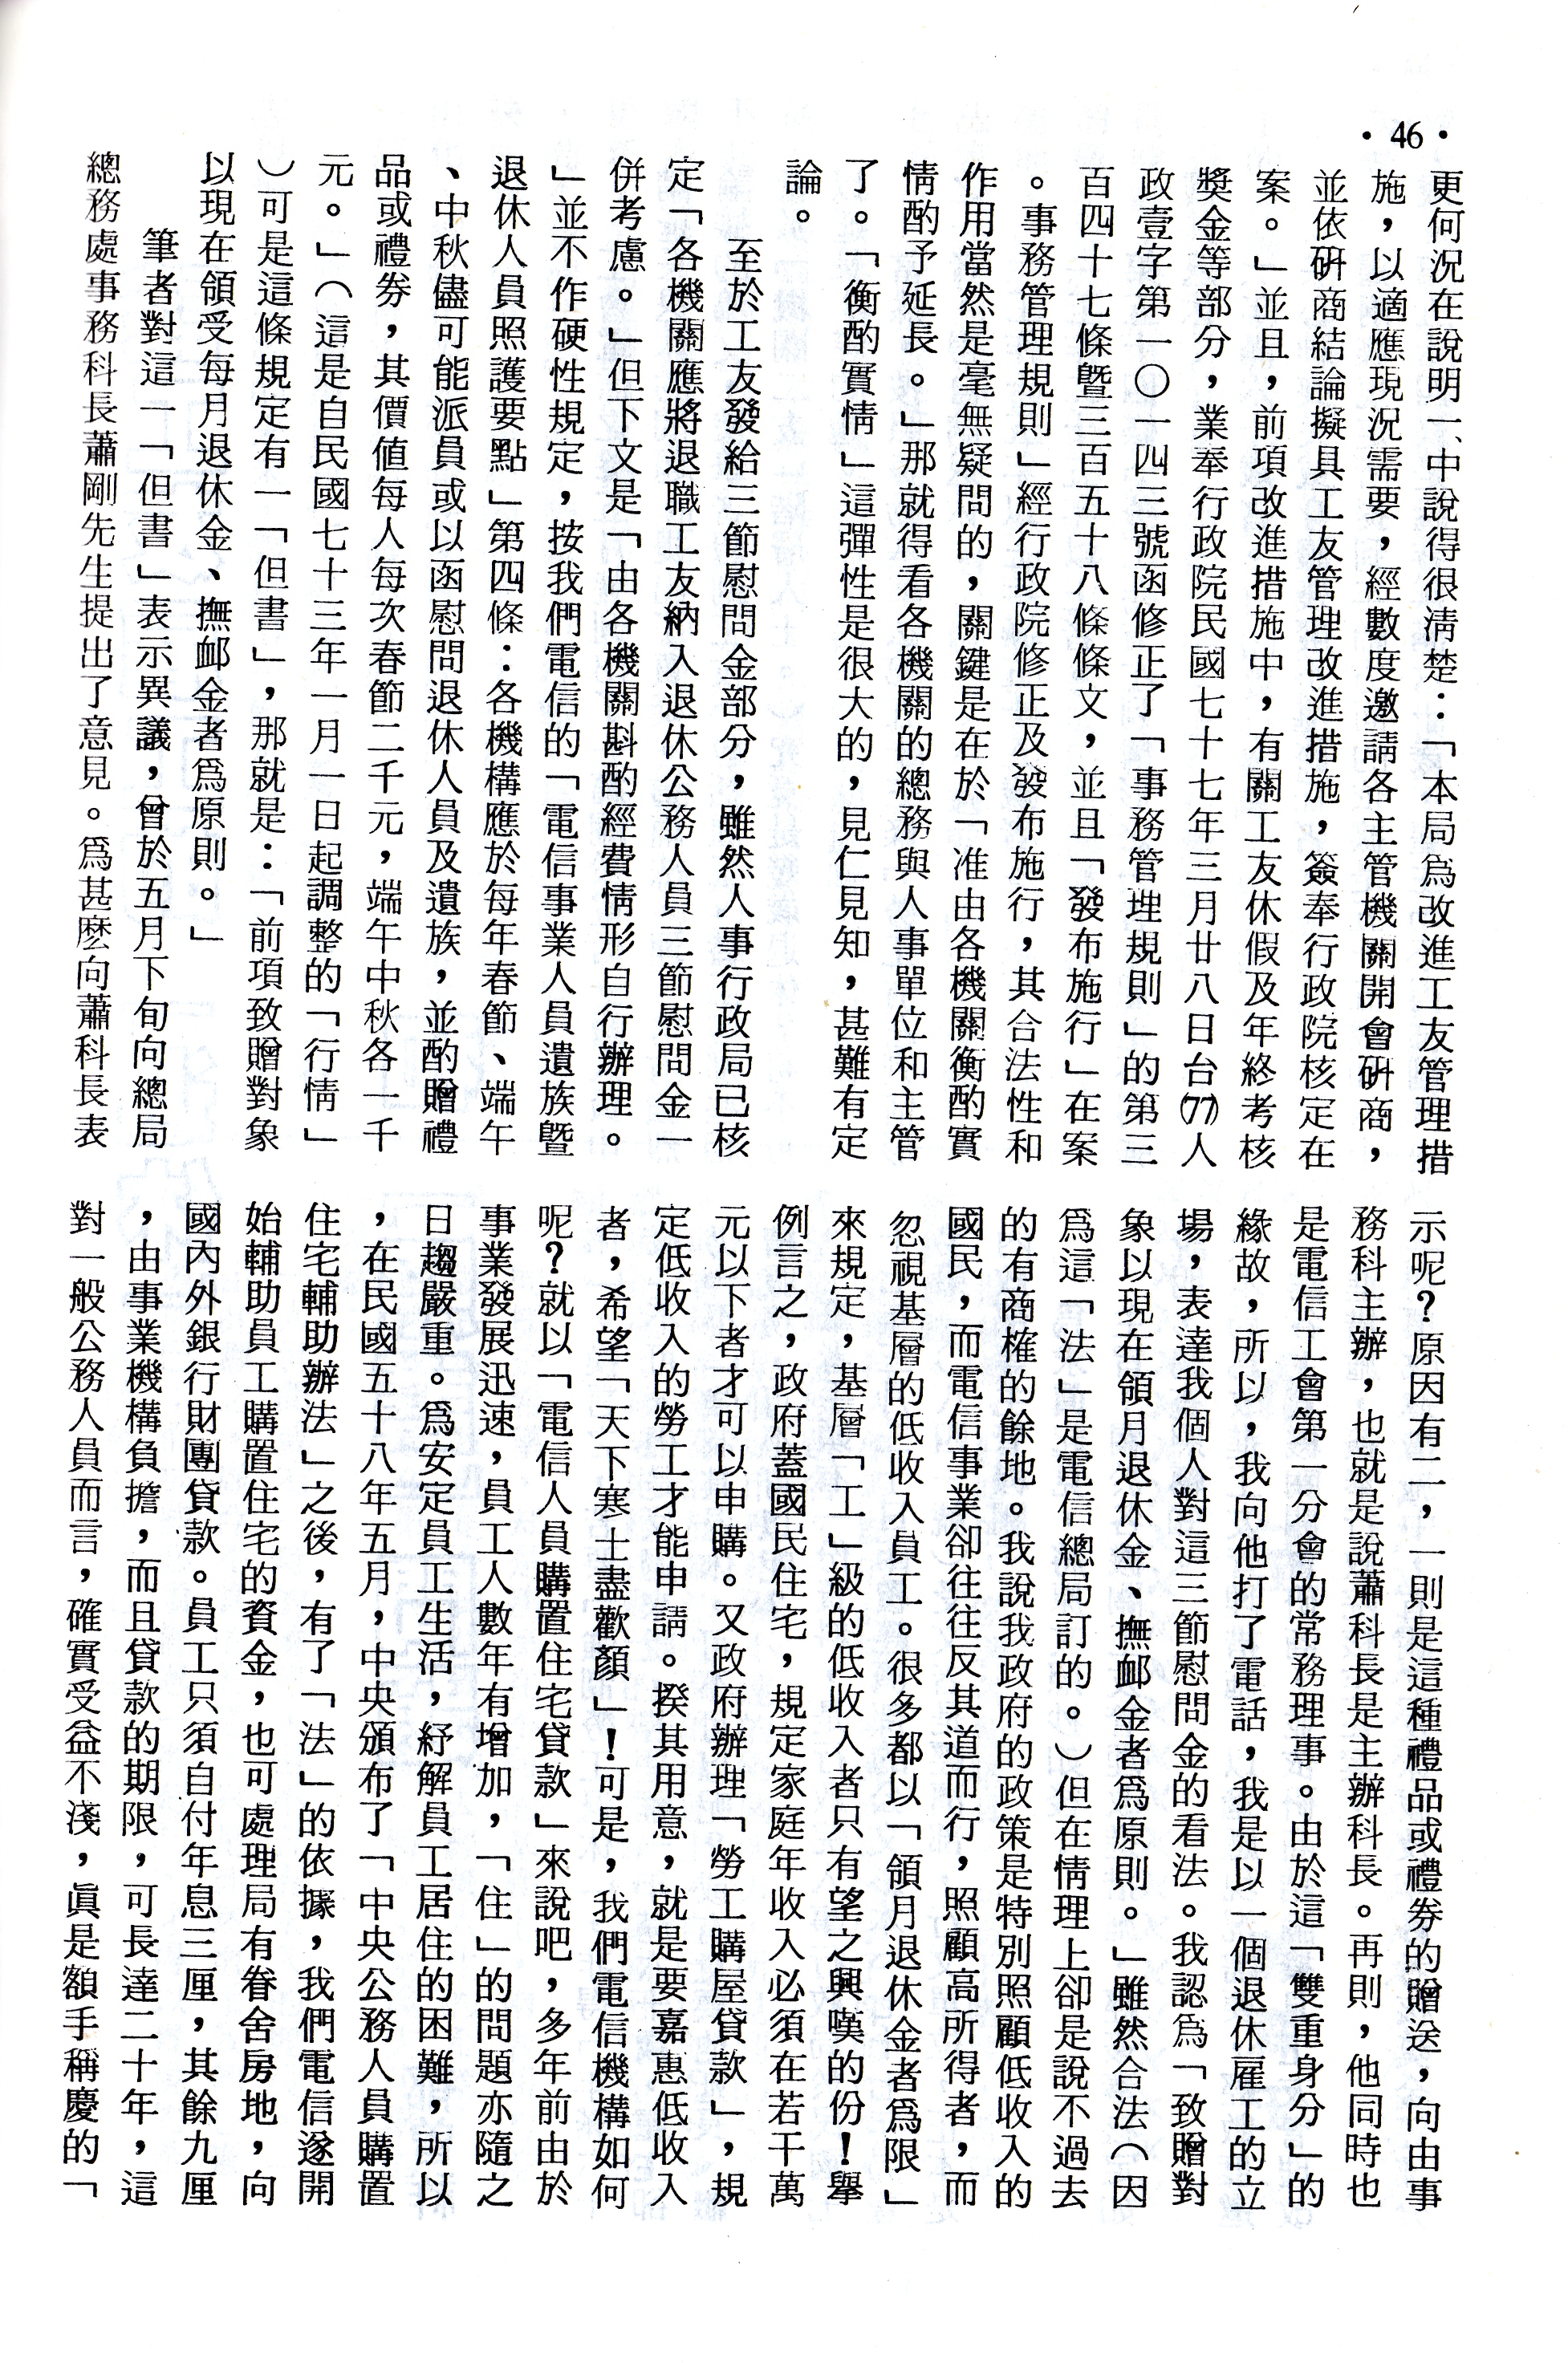 •46•
更何況在說明一、中說得很清楚：「本局爲改進工友管理措
施，以適應現況需要，經數度邀請各主管機關開會硏商，
並依硏商結論擬具工友管理改進措施，簽奉行政院核定在
案。」並且，前項改進措施中，有關工友休假及年終考核
獎金等部分，業奉行政院民國七十七年三月廿八日台(77)人
政壹字第一〇一四三號函修正了「事務管理規則」的第三
百四十七條曁三百五十八條條文，並且「發布施行」在案
。事務管理規則」經行政院修正及發布施行，其合法性和
作用當然是毫無疑問的，關鍵是在於「准由各機關衡酌實
情酌予延長。」那就得看各機關的總務與人事單位和主管
了。「衡酌實情」這彈性是很大的，見仁見知，甚難有定
論。
至於工友發給三節慰問金部分，雖然人事行政局已核
定「各機關應將退職工友納入退休公務人員三節慰問金一
併考慮。」但下文是「由各機關斟酌經費情形自行辦理。
」並不作硬性規定，按我們電信的「電信事業人員遺族曁
退休人員照護要點」第四條：各機構應於每年春節、端午
、中秋儘可能派員或以函慰問退休人員及遺族，並酌贈禮
品或禮券，其價値每人每次春節二千元，端午中秋各一千
元。」（這是自民國七十三年一月一日起調整的「行情」
）可是這條規定有一「但書」，那就是：「前項致贈對象
以現在領受每月退休金、撫卹金者爲原則。」
筆者對這一「但書」表示異議，曾於五月下旬向總局
總務處事務科長蕭剛先生提出了意見。爲甚麽向蕭科長表
示呢？原因有二，一則是這種禮品或禮券的贈送，向由事
務科主辦，也就是說蕭科長是主辦科長。再則，他同時也
是電信工會第一分會的常務理事。由於這「雙重身分」的
緣故，所以，我向他打了電話，我是以一個退休雇工的立
場，表達我個人對這三節慰問金的看法。我認爲「致贈對
象以現在領月退休金、撫卹金者爲原則。」雖然合法（因
爲這「法」是電信總局訂的。）但在情理上卻是說不過去
的有商榷的餘地。我說我政府的政策是特別照顧低收入的
國民，而電信事業卻往往反其道而行，照顧高所得者，而
忽視基層的低收入員工。很多都以「領月退休金者爲限」
來規定，基層「工」級的低收入者只有望之興嘆的份！舉
例言之，政府蓋國民住宅，規定家庭年收入必須在若干萬
元以下者才可以申購。又政府辦理「勞工購屋貸款」，規
定低收入的勞工才能申請。揆其用意，就是要嘉惠低收入
者，希望「天下寒士盡歡顏」！可是，我們電信機構如何
呢？就以「電信人員購置住宅貸款」來說吧，多年前由於
事業發展迅速，員工人數年有增加，「住」的問題亦隨之
日趨嚴重。爲安定員工生活，紓解員工居住的困難，所以
，在民國五十八年五月，中央頒布了「中央公務人員購置
住宅輔助辦法」之後，有了「法」的依據，我們電信遂開
始輔助員工購置住宅的資金，也可處理局有眷舍房地，向
國內外銀行財團貸款。員工只須自付年息三厘，其餘九厘
，由事業機構負擔，而且貸款的期限，可長達二十年，這
對一般公務人員而言，確實受益不淺，眞是額手稱慶的「